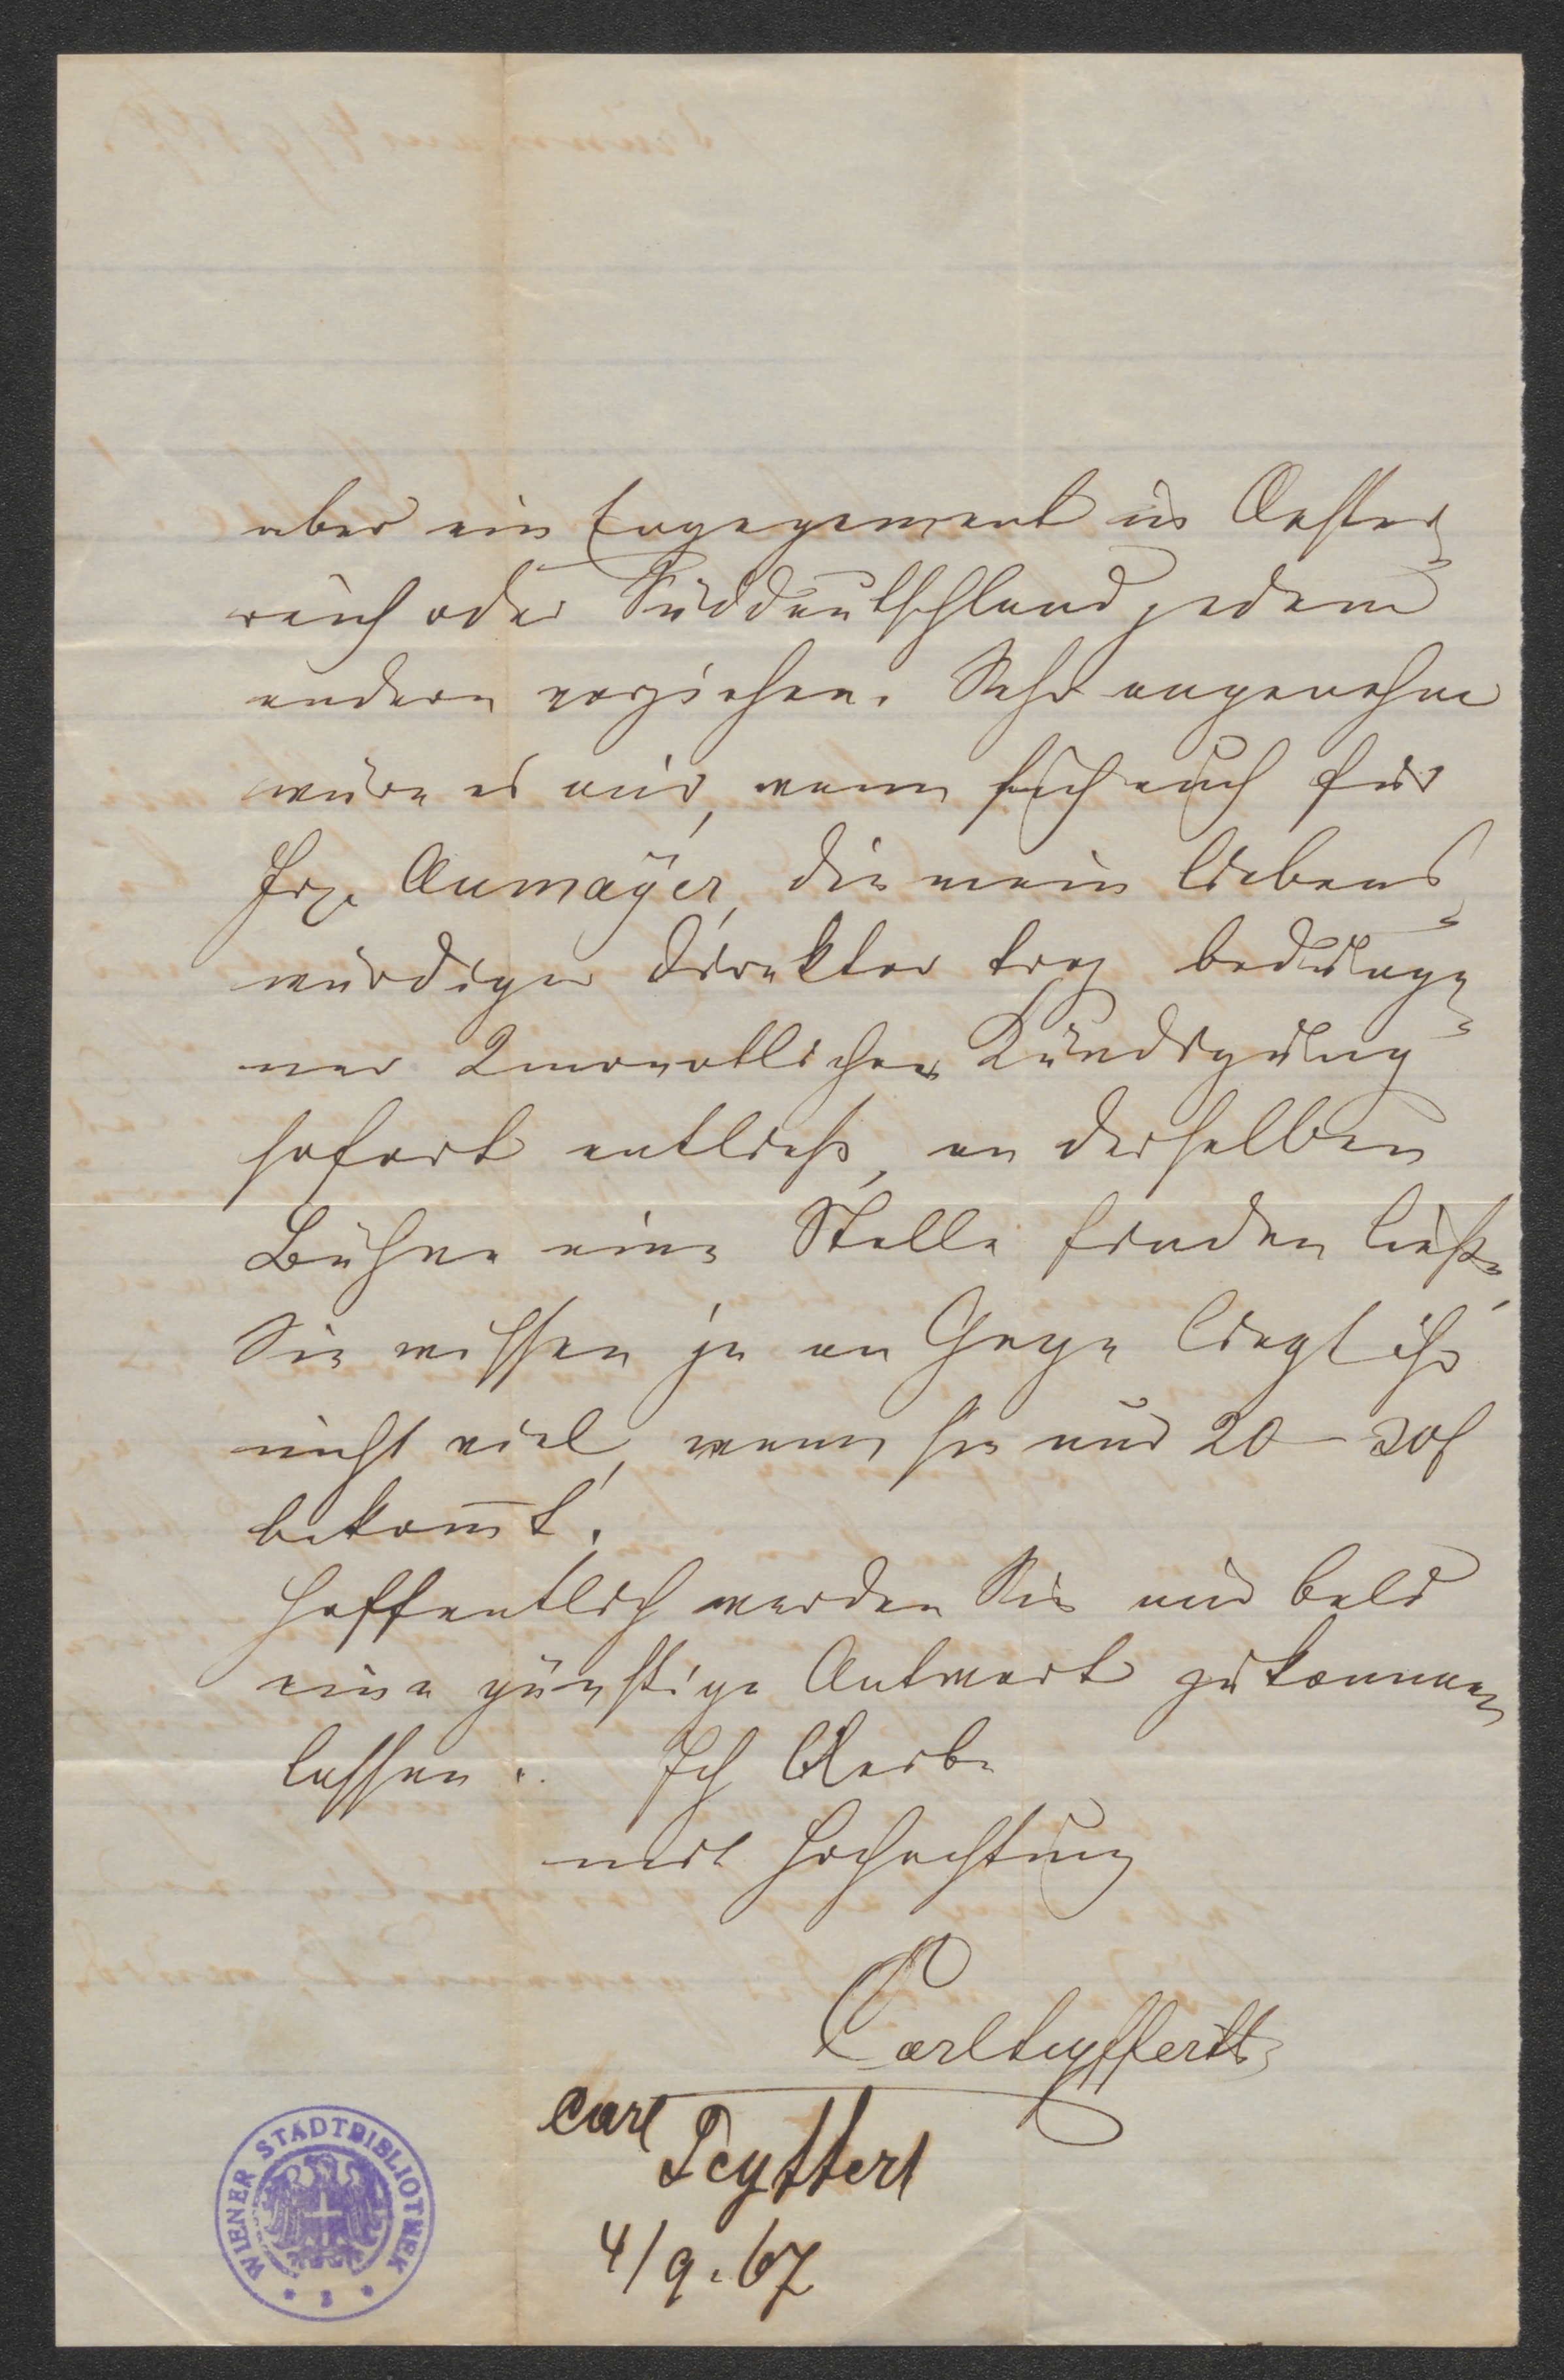 aber ein Engagement in Oester-
reich oder Süddeutschland jedem
andern vorziehen. Sehr angenehm
wäre es mir, wenn sich auch für
Frl. Aumayer, die mein liebens-
würdiger Direktor troz bedunge-
ner 2monatlicher Kündigung
sofort entließ, an derselben
Bühne eine Stelle finden ließe,
Sie wissen ja an Gage liegt ihr
nicht viel, wenn sie nur 20–30f
bekom̅t.
Hoffentlich werden Sie mir bald
eine günstige Antwort zukommen
lassen. Ich bleibe
mit Hochachtung
Carl Seyffertt
Carl Seyffert
4/9.67
WIENER STADTBIBLIOTHEK